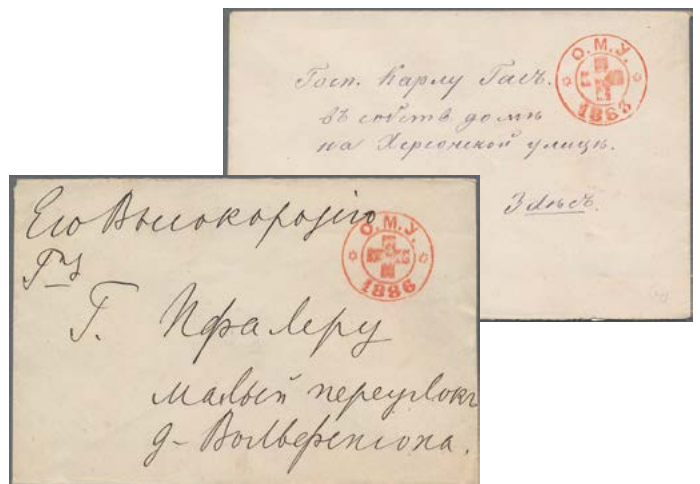 О.М.У.
Госп. Карлу Гасъ.
въ собств домѣ
на Херсонской улицѣ.
Здѣсь.
О.М.У.
1886
Его Высокородію
Г. Пфалеру
малый переулокъ
д- Вольфензона.